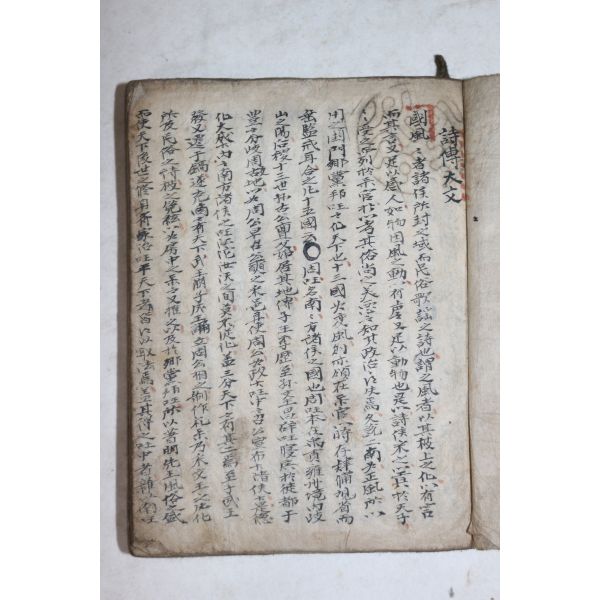 詩傳大文
國風 〻者諸侯所封之域而民俗歌謠之詩也謂之風者以其被上之化以有言
而其言又足以感人如物因風之動以有聲又足以動物也是以諸侯采之以貢於天子
〻〻受之列於樂官於以考其俗尚之美惡知其政治之得失焉 二南為正風所以
用之閨門鄉黨邦國化天下也十三國為變風則亦領在樂官以時存肄備觀省而
垂監戒耳合之凡十五國云 周 召南 南方諸侯之國也周 本 在禹貢雍州境內岐
山之陽后稷十三世孫古公亶父始居其地傳子王季歷至孫文王 辟 於 徙都于
豐 分岐周故地以為周公旦召公奭之采邑 使周公為政 中 召公宣布 諸侯 德
化大成 內 南方諸侯 江沱汝漢之間莫不從化盖三分天下 有其二焉至 武王
發又遷于鎬遂克商 有天下武王崩子成王誦立周公相之制作礼樂乃采文王之世 化
所及民俗之詩被之管絃以為房中之樂 又推之以及於鄉黨邦 所以著明先王風俗之盛
而使天下後世之修身齊家治 平天下者皆 以取法焉盖其得之 中者雜 南